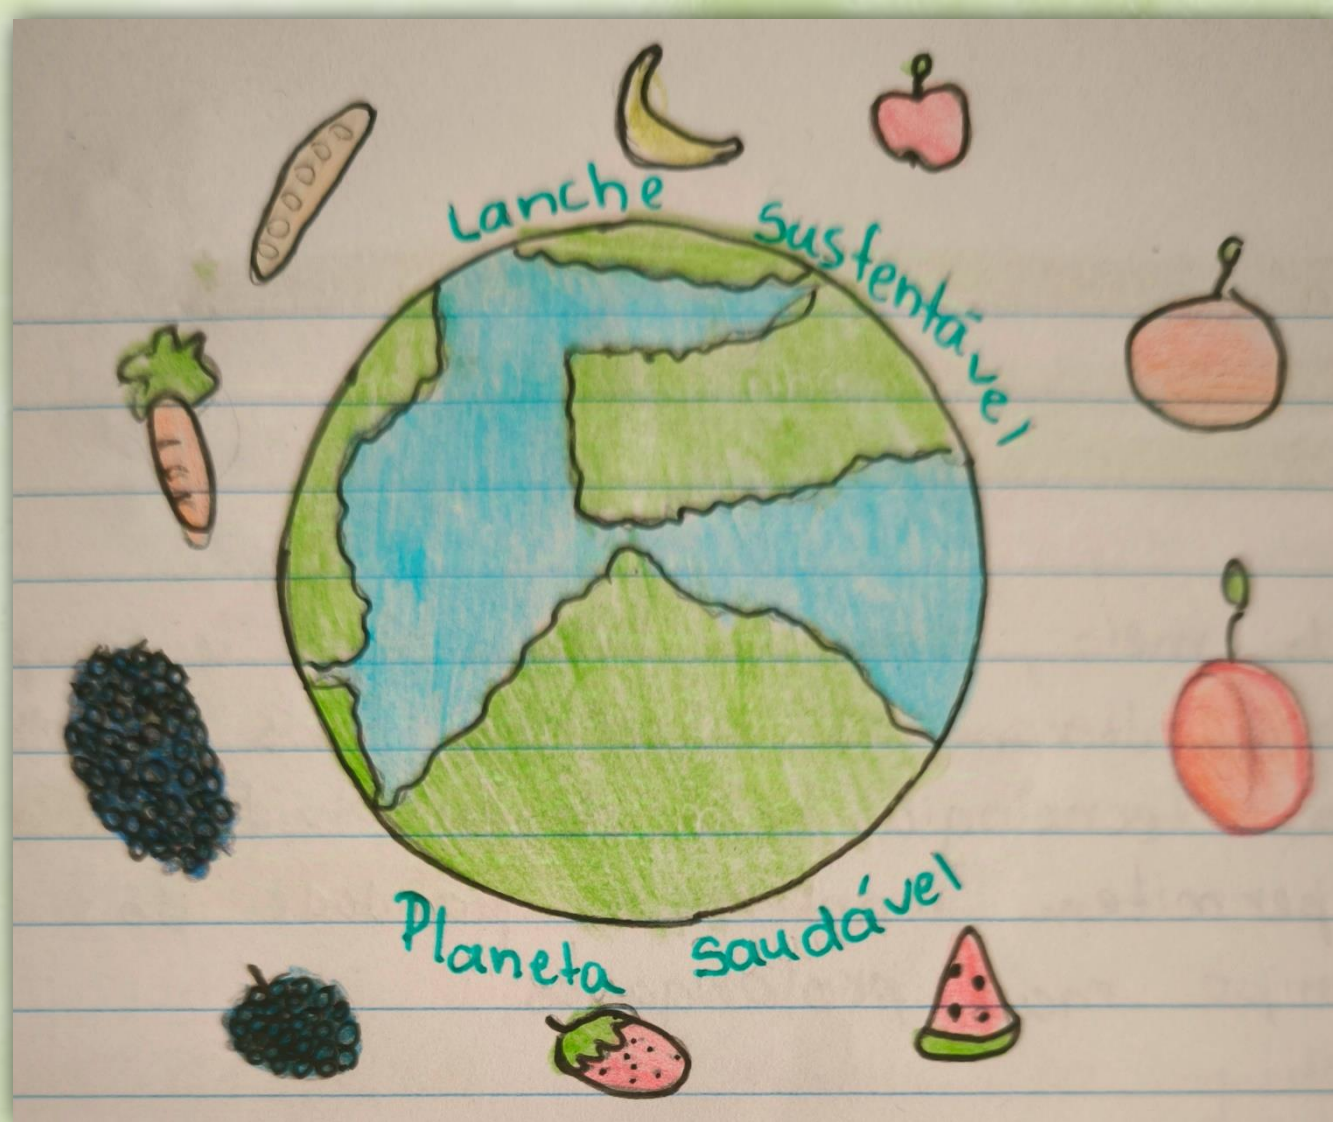 Lanche Sustentável
Planeta saudável